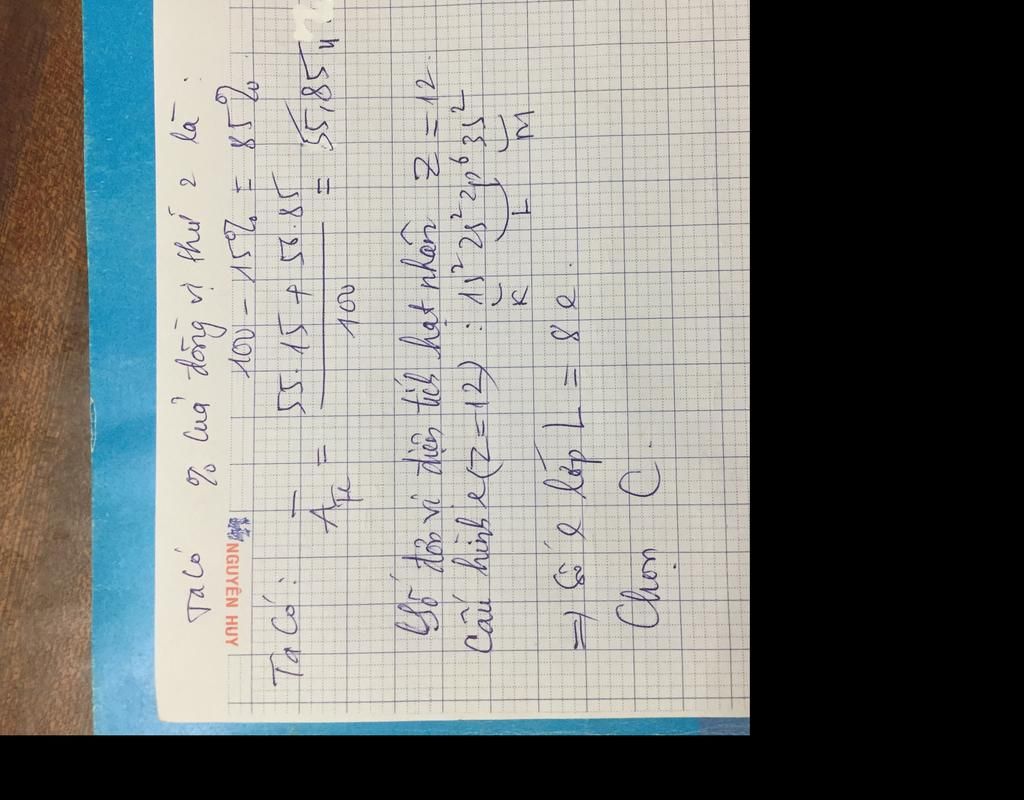 Ta có % của đồng vị thứ 2 là :
100 - 15% = 85%.
NGUYÊN HUY
Ta Có: A̅ = 55.15 + 56.85 / 100 = 55,85 u
Số đơn vị điện tích hạt nhân Z = 12
Cấu hình e (Z = 12) : 1s² 2s² 2p⁶ 3s²
K L M
=> Số e lớp L = 8 e.
Chọn C.